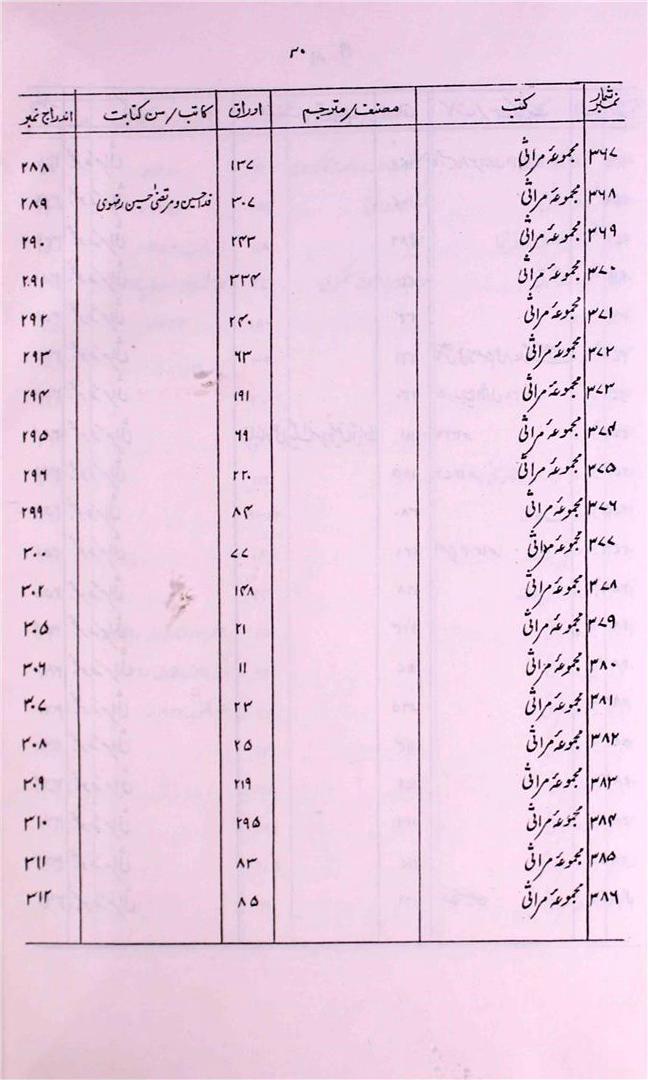 ۳۰
نمبر شمار کتب مصنف/مترجم اوراق کاتب/سن کتابت اندراج نمبر
۳۶۷ مجموعۂ مراثی ۱۳۷ ۲۸۸
۳۶۸ مجموعۂ مراثی ۳۰۷ فدا حسین و مرتضیٰ حسین رضوی ۲۸۹
۳۶۹ مجموعۂ مراثی ۲۴۳ ۲۹۰
۳۷۰ مجموعۂ مراثی ۳۳۴ ۲۹۱
۳۷۱ مجموعۂ مراثی ۲۴۰ ۲۹۲
۳۷۲ مجموعۂ مراثی ۶۳ ۲۹۳
۳۷۳ مجموعۂ مراثی ۱۹۱ ۲۹۴
۳۷۴ مجموعۂ مراثی ۶۹ ۲۹۵
۳۷۵ مجموعۂ مراثی ۲۲۰ ۲۹۶
۳۷۶ مجموعۂ مراثی ۸۴ ۲۹۹
۳۷۷ مجموعۂ مراثی ۷۷ ۳۰۰
۳۷۸ مجموعۂ مراثی ۱۴۸ ۳۰۲
۳۷۹ مجموعۂ مراثی ۲۱ ۳۰۵
۳۸۰ مجموعۂ مراثی ۱۱ ۳۰۶
۳۸۱ مجموعۂ مراثی ۲۳ ۳۰۷
۳۸۲ مجموعۂ مراثی ۲۵ ۳۰۸
۳۸۳ مجموعۂ مراثی ۲۱۹ ۳۰۹
۳۸۴ مجموعۂ مراثی ۲۹۵ ۳۱۰
۳۸۵ مجموعۂ مراثی ۸۳ ۳۱۱
۳۸۶ مجموعۂ مراثی ۸۵ ۳۱۲